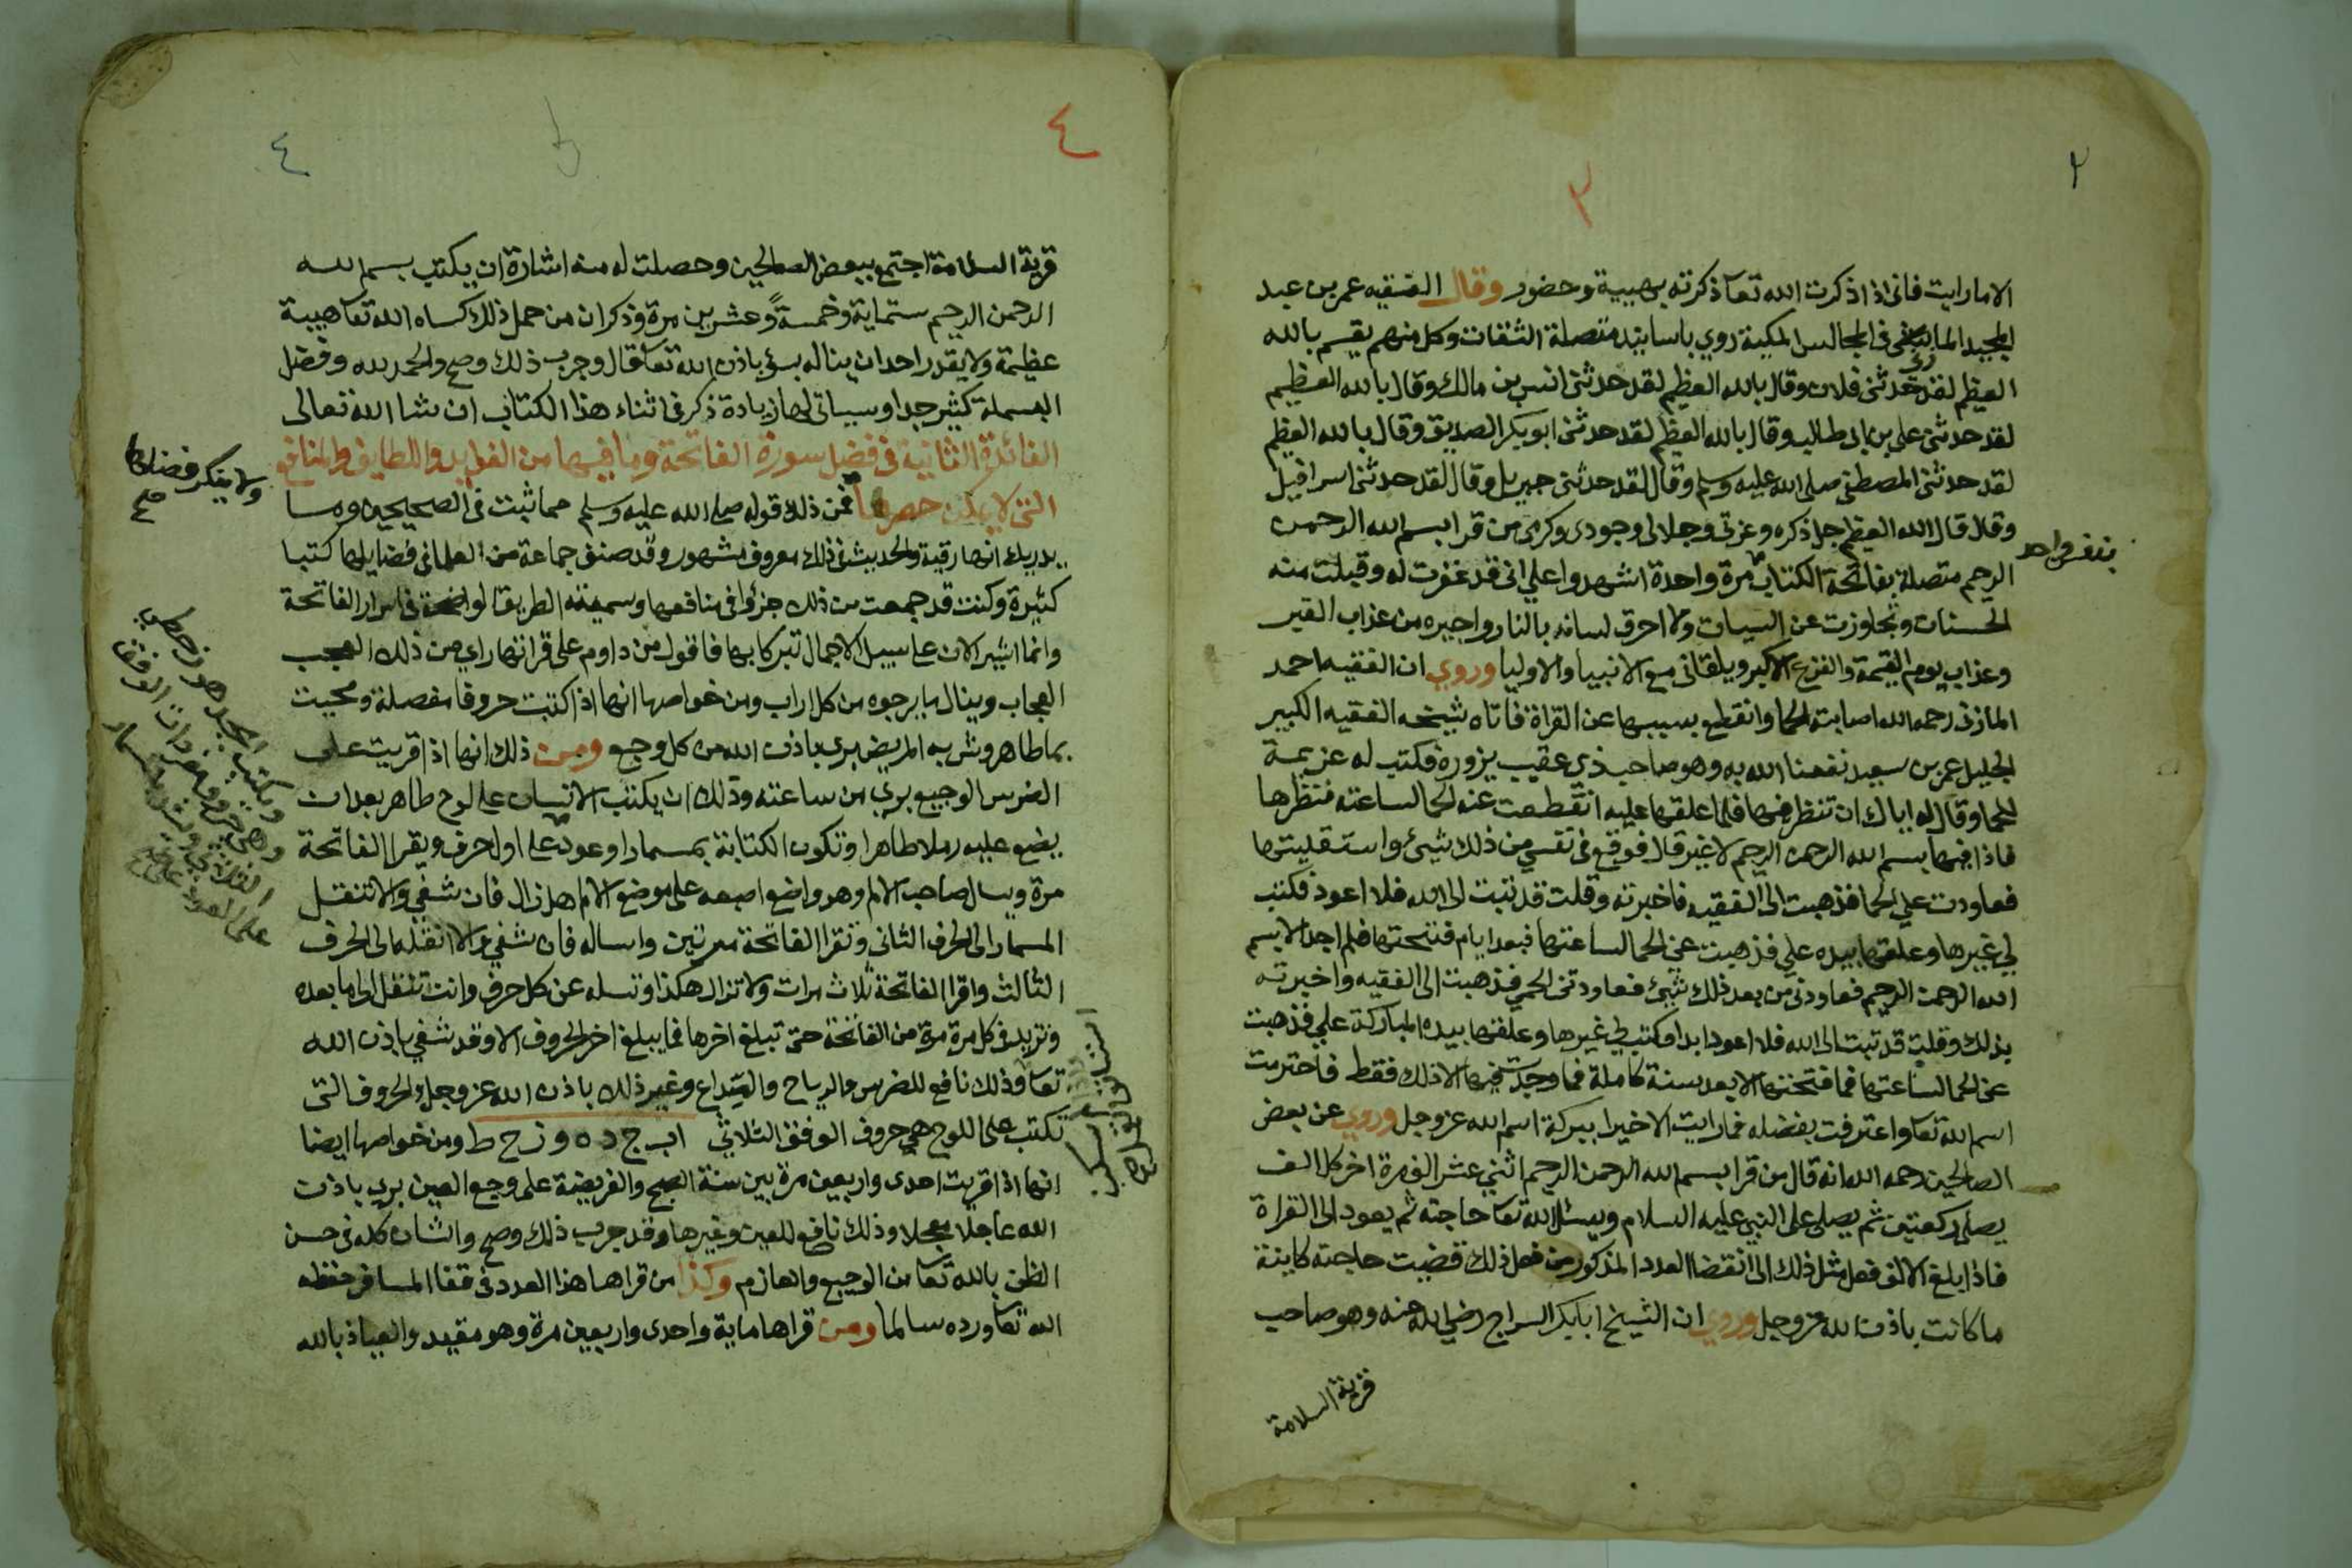 ٢
٣
الا مارايت فانى اذا ذكرت الله تعا ذكرته بهيبة وحضور وقال الفقيه عمر بن عبد
المجيد الميانشى فى المجالس المكية روي باسانيد متصلة الثقات وكل منهم يقسم بالله
العظيم لقد حدثنى فلان وقال بالله العظيم لقد حدثنى انس بن مالك وقال بالله العظيم
لقد حدثنى على بن ابى طالب وقال بالله العظيم لقد حدثنى ابو بكر الصديق وقال بالله العظيم
لقد حدثنى المصطفى صلى الله عليه وسلم وقال لقد حدثنى جبريل وقال لقد حدثنى اسرافيل
وقال قال الله العظيم جل ذكره وعزتى وجلالى وجودى وكرمى من قرا بسم الله الرحمن
بنفس واحد
الرحيم متصلة بفاتحة الكتاب مرة واحدة اشهدوا علي انى قد غفرت له وقبلت منه
الحسنات وتجاوزت عن السيات ولا احرق لسانه بالنار واجيره من عذاب القبر
وعذاب يوم القيمة والفزع الاكبر ويلقانى مع الانبيا والاوليا وروي ان الفقيه احمد
المازنى رحمه الله اصابته الحما وانقطع بسببها عن القراة فاتاه شيخه الفقيه الكبير
الجليل عمر بن سعيد نفعنا الله به وهو صاحب ذي عقيب يزوره فكتب له عزيمة
للحما وقال له اياك ان تنظر فيها فلما علقها عليه انقطعت عنه الحما لساعته فنظرها
فاذا فيها بسم الله الرحمن الرحيم لا غير قال فوقع فى نفسي من ذلك شيء واستقليتها
فعاودت علي الحما فذهبت الى الفقيه فاخبرته وقلت قد تبت الى الله فلا اعود فكتب
لي غيرها وعلقها بيده علي فذهبت عني الحما لساعتها فبعد ايام فتحتها فلم اجد الا بسم
الله الرحمن الرحيم فعاودنى من بعد ذلك شيئ فعاودتنى الحمي فذهبت الى الفقيه واخبرته
بذلك وقلت قد تبت الى الله فلا اعود ابدا فكتب لي غيرها وعلقها بيده المباركة علي فذهبت
عنى الحما لساعتها فما فتحتها الا بعد سنة كاملة فما وجدت فيها الا ذلك فقط فاحترمت
اسم الله تعا واعترفت بفضله فما رايت الا خيرا ببركة اسم الله عز وجل وروي عن بعض
الصالحين رحمه الله انه قال من قرا بسم الله الرحمن الرحيم اثني عشر الف مرة اخر كل الف
يصلى ركعتين ثم يصلى على النبى عليه السلام ويسئل الله تعا حاجته ثم يعود الى القراة
فاذا بلغ الالف فعل مثل ذلك الى انقضا العدد المذكور من فعل ذلك قضيت حاجته كاينة
ما كانت باذن الله عز وجل وروي ان الشيخ ابا بكر السراج رضي الله عنه وهو صاحب
قرية السلامة
٤
٤
قرية السلامة اجتمع ببعض الصالحين وحصلت له منه اشارة ان يكتب بسم الله
الرحمن الرحيم ستماية وخمسة وعشرين مرة وذكر ان من حمل ذلك كساه الله تعا هيبة
عظيمة ولا يقدر احد ان يناله بسوء باذن الله تعا قال وجرب ذلك وصح والحمد لله وفضل
البسملة كثير جدا وسياتى لها زيادة ذكر فى اثناء هذا الكتاب ان شا الله تعالى
الفائدة الثانية فى فضل سورة الفاتحة وما فيها من الفوايد واللطايف والمنافع
التى لا يمكن حصرها فمن ذلك قوله صلى الله عليه وسلم مما ثبت فى الصحيحين وما
ولا ينكر فضلها
صح
يدريك انها رقية والحديث فى ذلك معروف مشهور وقد صنف جماعة من العلما فى فضايلها كتبا
كثيرة وكنت قد جمعت من ذلك جزؤا فى منافعها وسميته الطريقة الواضحة فى اسرار الفاتحة
وانما اشير الان على سبيل الاجمال تبركا بها فاقول من داوم على قراتها راي من ذلك العجب
العجاب وينال ما يرجوه من كل اراب ومن خواصها انها اذا كتبت حروفا مفصلة ومحيت
بما طاهر وشربه المريض برى باذن الله من كل وجع ومن ذلك انها اذا قريت على
الضرس الوجيع بري من ساعته وذلك ان يكتب الانسان على لوح طاهر بعد ان
يضع عليه رملا طاهرا وتكون الكتابة بمسمار او عود على اول حرف ويقرا الفاتحة
مرة ويسال صاحب الالم وهو واضع اصبعه على موضع الالم هل زال فان شفي والا تنقل
المسمار الى الحرف الثانى وتقرا الفاتحة مرتين واساله فان شفي والا انقله الى الحرف
الثالث واقرا الفاتحة ثلاث مرات ولا تزال هكذا وتسله عن كل حرف وانت تنتقل الى ما بعده
وتزيد فى كل مرة مرة من الفاتحة حتى تبلغ اخرها فما يبلغ اخر الحروف الا وقد شفي باذن الله
تعا وذلك نافع للضرس والرياح والصداع وغير ذلك باذن الله عز وجل والحروف التى
تكتب على اللوح هى حروف الوفق الثلاثي ا ب ج د ه و ز ح ط ومن خواصها ايضا
انها اذا قريت احدى واربعين مرة بين سنة الصبح والفريضة على وجع العين برى باذن
الله عاجلا معجلا وذلك نافع للعين وغيرها وقد جرب ذلك وصح والشان كله فى حسن
الظن بالله تعا من الوجيع والعازم وكذا من قراها هذا العدد فى قفا المسافر حفظه
الله تعا ورده سالما ومن قراها ماية واحدى واربعين مرة وهو مقيد والعياذ بالله